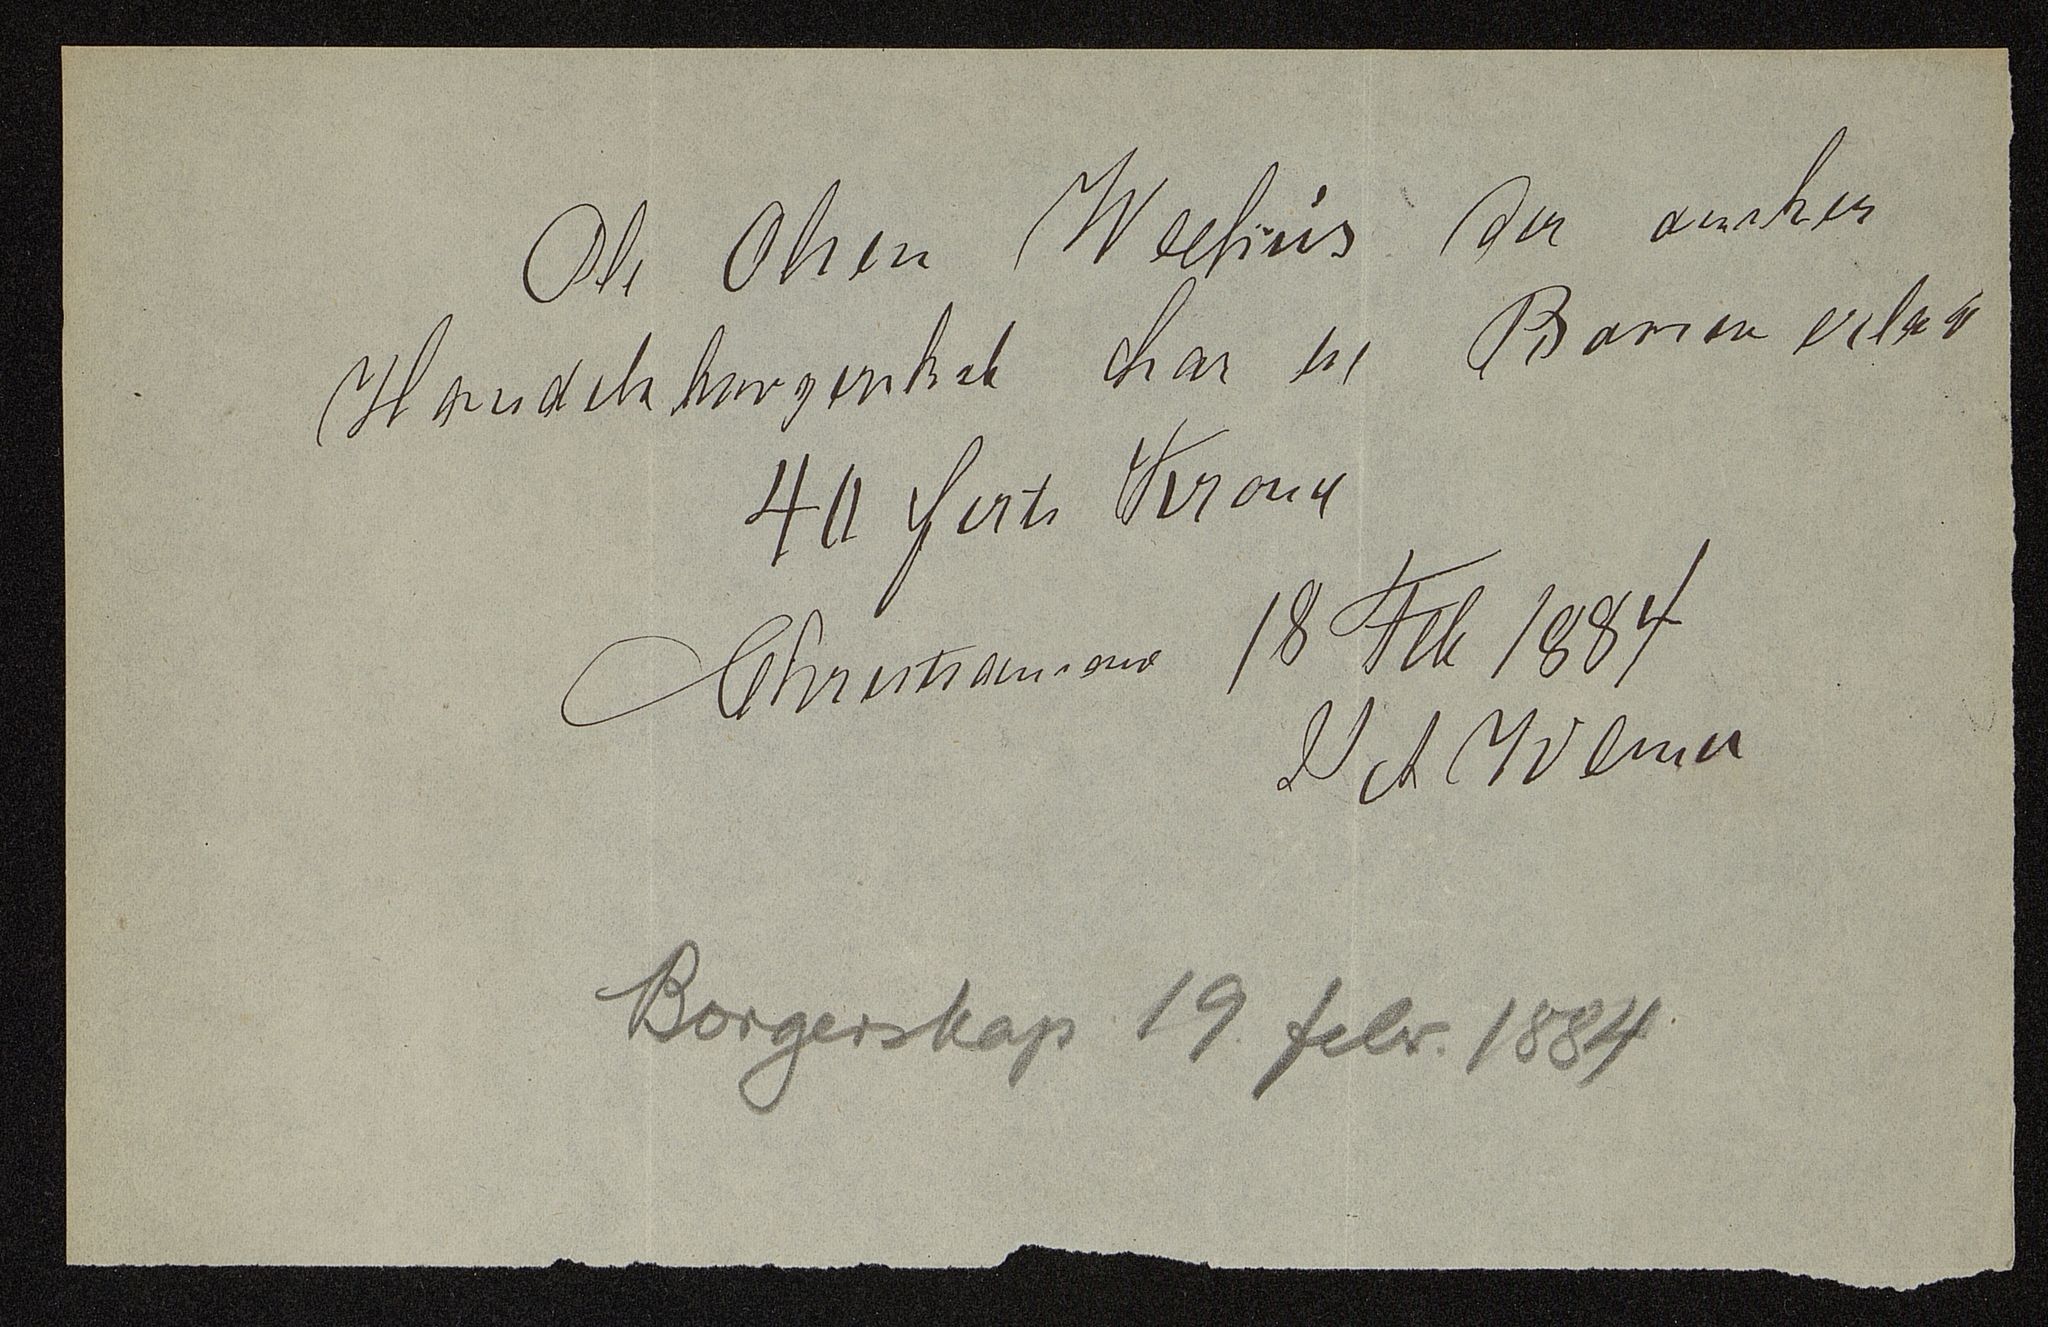 Ole Olsen Welfius der ønsker
Handelsborgerskab har til Byen erlagt
40 firti Kroner
Christianssand 18 Feb 1884
A Werner
Borgerskap 19. febr. 1884